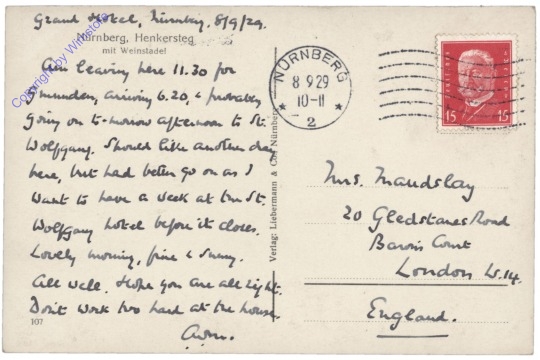 Grand Hotel, Nürnberg. 8/9/29.
Nürnberg, Henkersteg
mit Weinstadel
Am leaving here 11.30 for
Gmunden, arriving 6.20, & probably
going on to-morrow afternoon to St.
Wolfgang. Should like another day
here, but had better go on as I
want to have a week at the St.
Wolfgang hotel before it closes.
Lovely morning, fine & sunny.
All well. Hope you are all right.
Don't work too hard at the house.
107
Verlag: Liebermann & Co., Nürnberg
NÜRNBERG
8 9 29
10-11
* 2 *
15 15
Mrs. Maudslay
20 Gledstanes Road
Barons Court
London W.14.
England.
Copyright by Winstore